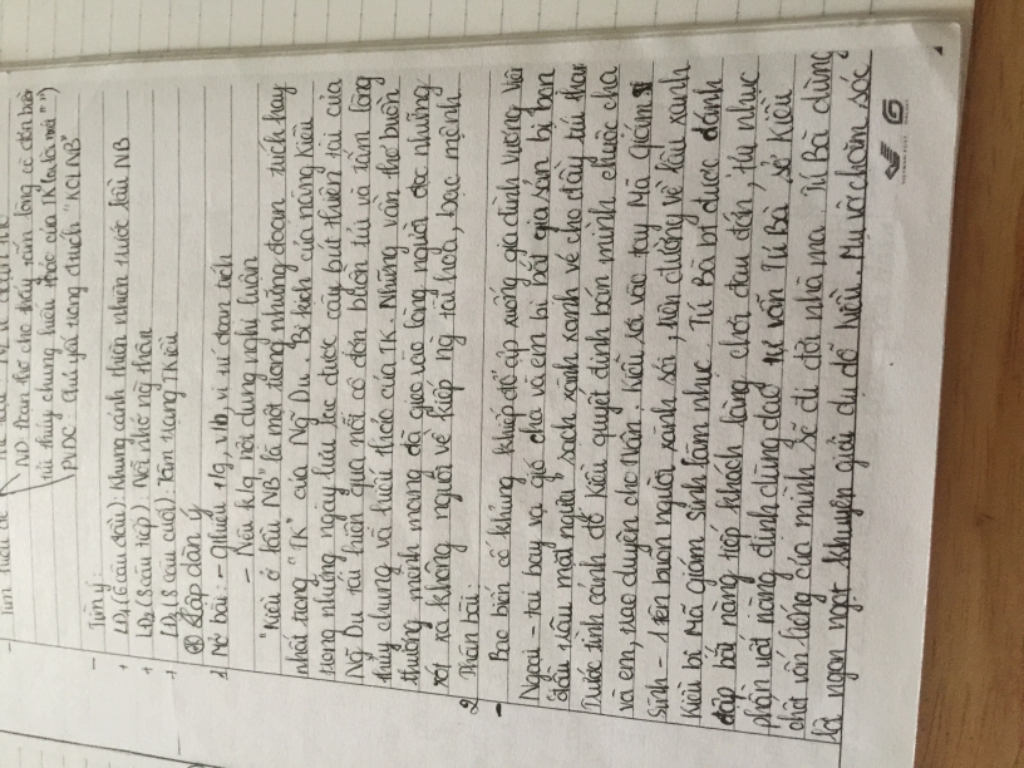 ND: Đoạn thơ cho thấy tấm lòng cô đơn buồn
tủi thủy chung hiếu thảo của TK
PVDC: chủ yếu trong đtrích "KOLNB"
- Tìm ý:
+ LĐ1 (6 câu đầu): Khung cảnh thiên nhiên trước lầu NB
+ LĐ2 (8 câu tiếp): Nỗi nhớ ng thân
+ LĐ3 (8 câu cuối): Tâm trạng TKiều
* Lập dàn ý
1 Mở bài: - Gthiệu t/g, vb, vị trí đoạn trích
- Nêu k/q nội dung nghị luận
"Kiều ở lầu NB" là một trong những đoạn trích hay
nhất trong "TK" của Ng Du. Bi kịch của nàng Kiều
trong những ngày lưu lạc được cây bút thiên tài của
Ng Du tái hiện qua nỗi cô đơn buồn tủi và tấm lòng
thủy chung và hiếu thảo của TK. Những vần thơ buồn
thương mênh mang đã gieo vào lòng người đọc những
xót xa khôn nguôi về kiếp ng tài hoa, bạc mệnh.
2 Thân bài:
- Bao biến cố khủng khiếp đổ ập xuống gia đình Vương Viên
Ngoại - tai bay vạ gió cha và em bị bắt gia sản bị bọn
đầu trâu mặt ngựa "sạch sành sanh vét cho đầy túi tham
Trước tình cảnh đó Kiều quyết định bán mình chuộc cha
và em, trao duyên cho Vân. Kiều sa vào tay Mã Giám
Sinh - 1 tên buôn người sành sỏi, trên đường về lầu xanh
Kiều bị Mã Giám Sinh làm nhục Tú Bà bị được đánh
đập bắt nàng tiếp khách làng chơi đau đớn, tủi nhục
phẫn uất nàng định dùng dao tự vẫn Tú Bà sợ Kiều
chết vốn liếng của mình sẽ đi đời nhà ma. Tú Bà dùng
lời ngon ngọt khuyên giải dụ dỗ Kiều. Mụ vờ chăm sóc